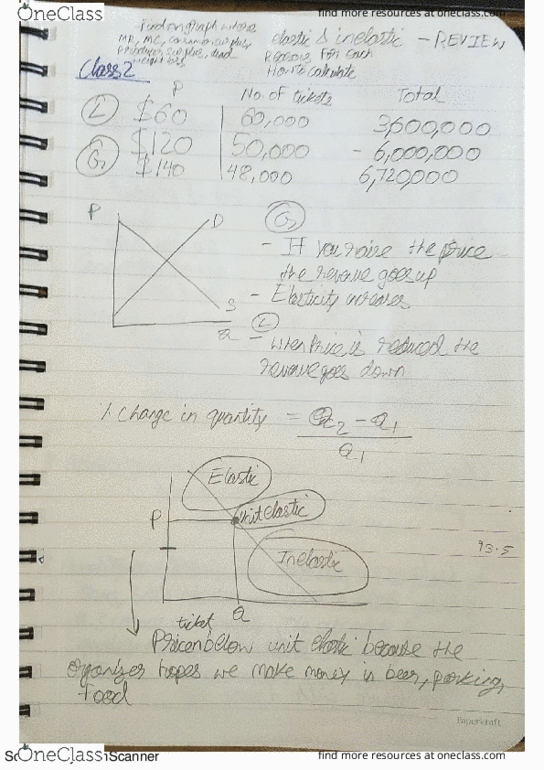 OneClass
find more resources at oneclass.com
Find on graph where
MR, MC, consumer surplus
producer surplus, dead
weight loss
elastic & inelastic - REVIEW
Reasons for each
How to calculate
Class 2
P
No. of tickets
Total
L $60 60,000 3,600,000
$120 50,000 - 6,000,000
G $140 48,000 6,720,000
P
D
S
Q
G
- If you raise the price
the revenue goes up
- Elasticity increases
L
- When price is reduced the
revenue goes down
% change in quantity = Q2 - Q1
Q1
Elastic
P
Unit elastic
Inelastic
93.5
Q
ticket
Price below unit elastic because the
organizer hopes we make money in beer, parking,
food
Paperkraft
OneClass
Scanner
find more resources at oneclass.com